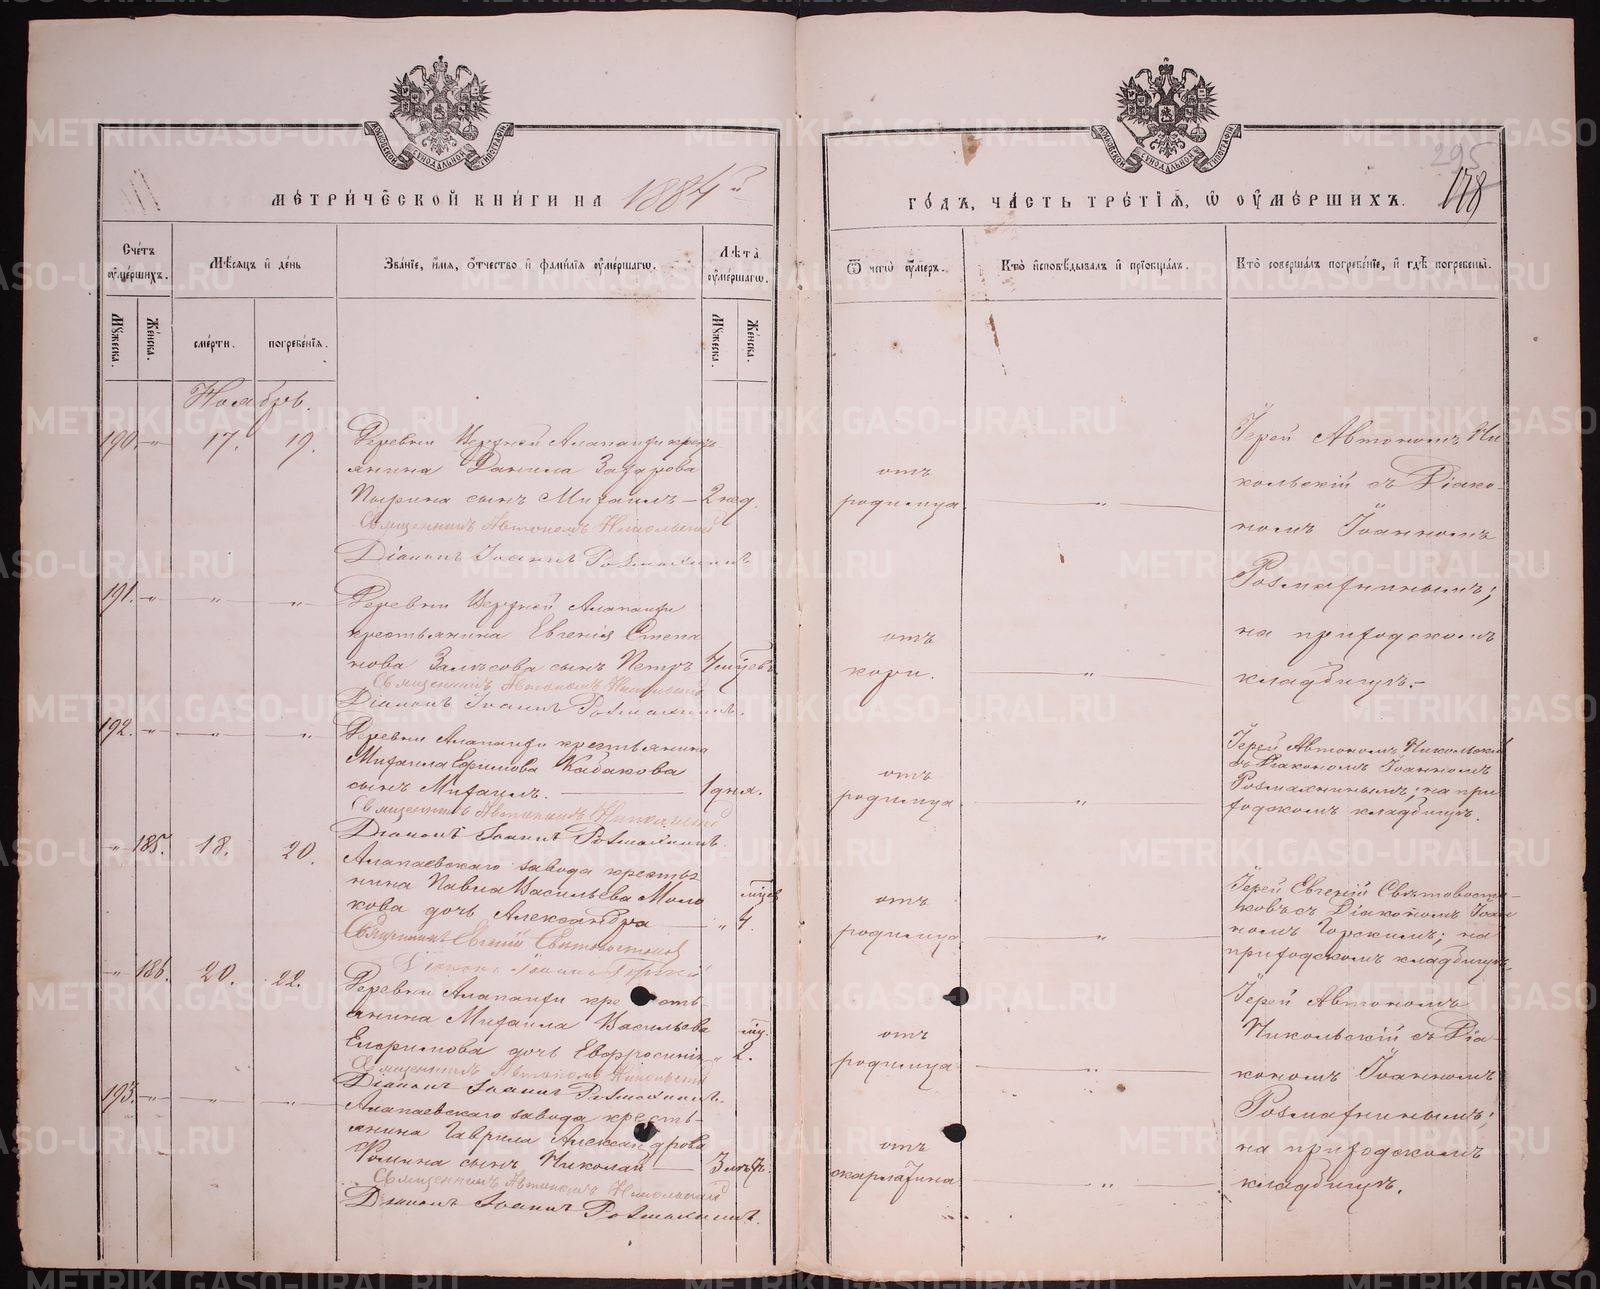 МЕТРИ́ЧЕСКОЙ КНИ́ГИ НА 1884 й
ГО́ДЪ, ЧА́СТЬ ТРЕ́ТІЯ, Ѡ ОУМЕ́РШИХЪ.
295
178
Сче́тъ оуме́ршихъ.
Мѣ́сяцъ и день
Зва́ніе, и́мя, о́тчество и фами́лія оуме́ршагѡ.
Лѣта̀ оуме́ршагѡ.
Ѿ чегѡ̀ оу́меръ.
Кто̀ исповѣ́дывалъ и пріобща́лъ.
Кто̀ соверша́лъ погребе́ніе, и гдѣ̀ погребены̀.
Му́жеска.
Же́нска.
сме́рти.
погребе́нія.
Му́жеска.
Же́нска.
Ноябрь.
190. — „ — 17. 19.
Деревни Верхней Алапаихи крес-
янина Данила Захарова
сынъ Михаилъ — 2 нед.
Священникъ Автономъ Никольский
Діаконъ Іоаннъ Розмахнинъ
отъ
родимца. — „ —
Іерей Автономъ Ни
кольскій съ Діако-
номъ Іоанномъ
Розмахнинымъ;
на приходскомъ
кладбищѣ.-
191. — „ — „ — „
Деревни Верхней Алапаихи
крестьянина Евгенія Степа
нова сынъ Петръ
Священникъ Автономъ Никольский
Діаконъ Іоаннъ Розмахнинъ.
отъ
кори. — „ —
192. — „ — „ — „
Деревни Алапаихи крестьянина
Михаила Ефимова Кабакова
сынъ Михаилъ. — 1 дня.
Священникъ Автономъ Никольский
Діаконъ Іоаннъ Розмахнинъ.
отъ
родимца. — „ —
Іерей Автономъ Никольскій
съ Діакономъ Іоанномъ
Розмахнинымъ; на при
ходскомъ кладбищѣ.
„ 185. 18. 20.
Алапаевскаго завода крестья
нина Павла Васильева Моло
кова дочь Александра — „ 4.
мѣсяц
Священникъ Евгеній Свѣтовостоковъ
Діаконъ Іоаннъ Горскій
отъ
родимца — „ —
Іерей Евгеній Свѣтовосто-
ковъ съ Діакономъ Іоан
номъ Горскимъ; на
приходскомъ кладбищѣ.
„ 186. 20. 22.
Деревни Алапаихи кресть-
янина Михаила Васильева
дочь Евфросинія „ 2.
мѣс.
Священникъ Автономъ Никольский
Діаконъ Іоаннъ Розмахнинъ.
отъ
родимца — „ —
Іерей Автономъ
Никольскій съ Діа-
кономъ Іоанномъ
Розмахнинымъ;
на приходскомъ
кладбищѣ.
193. — „ — „ — „
Алапаевскаго завода кресть-
янина Гаврила Александрова
Фомина сынъ Николай — 3 лѣтъ.
Священникъ Автономъ Никольский
Діаконъ Іоаннъ Розмахнинъ.
отъ
скарлатина — „ —
METRIKI.GASO-URAL.RU